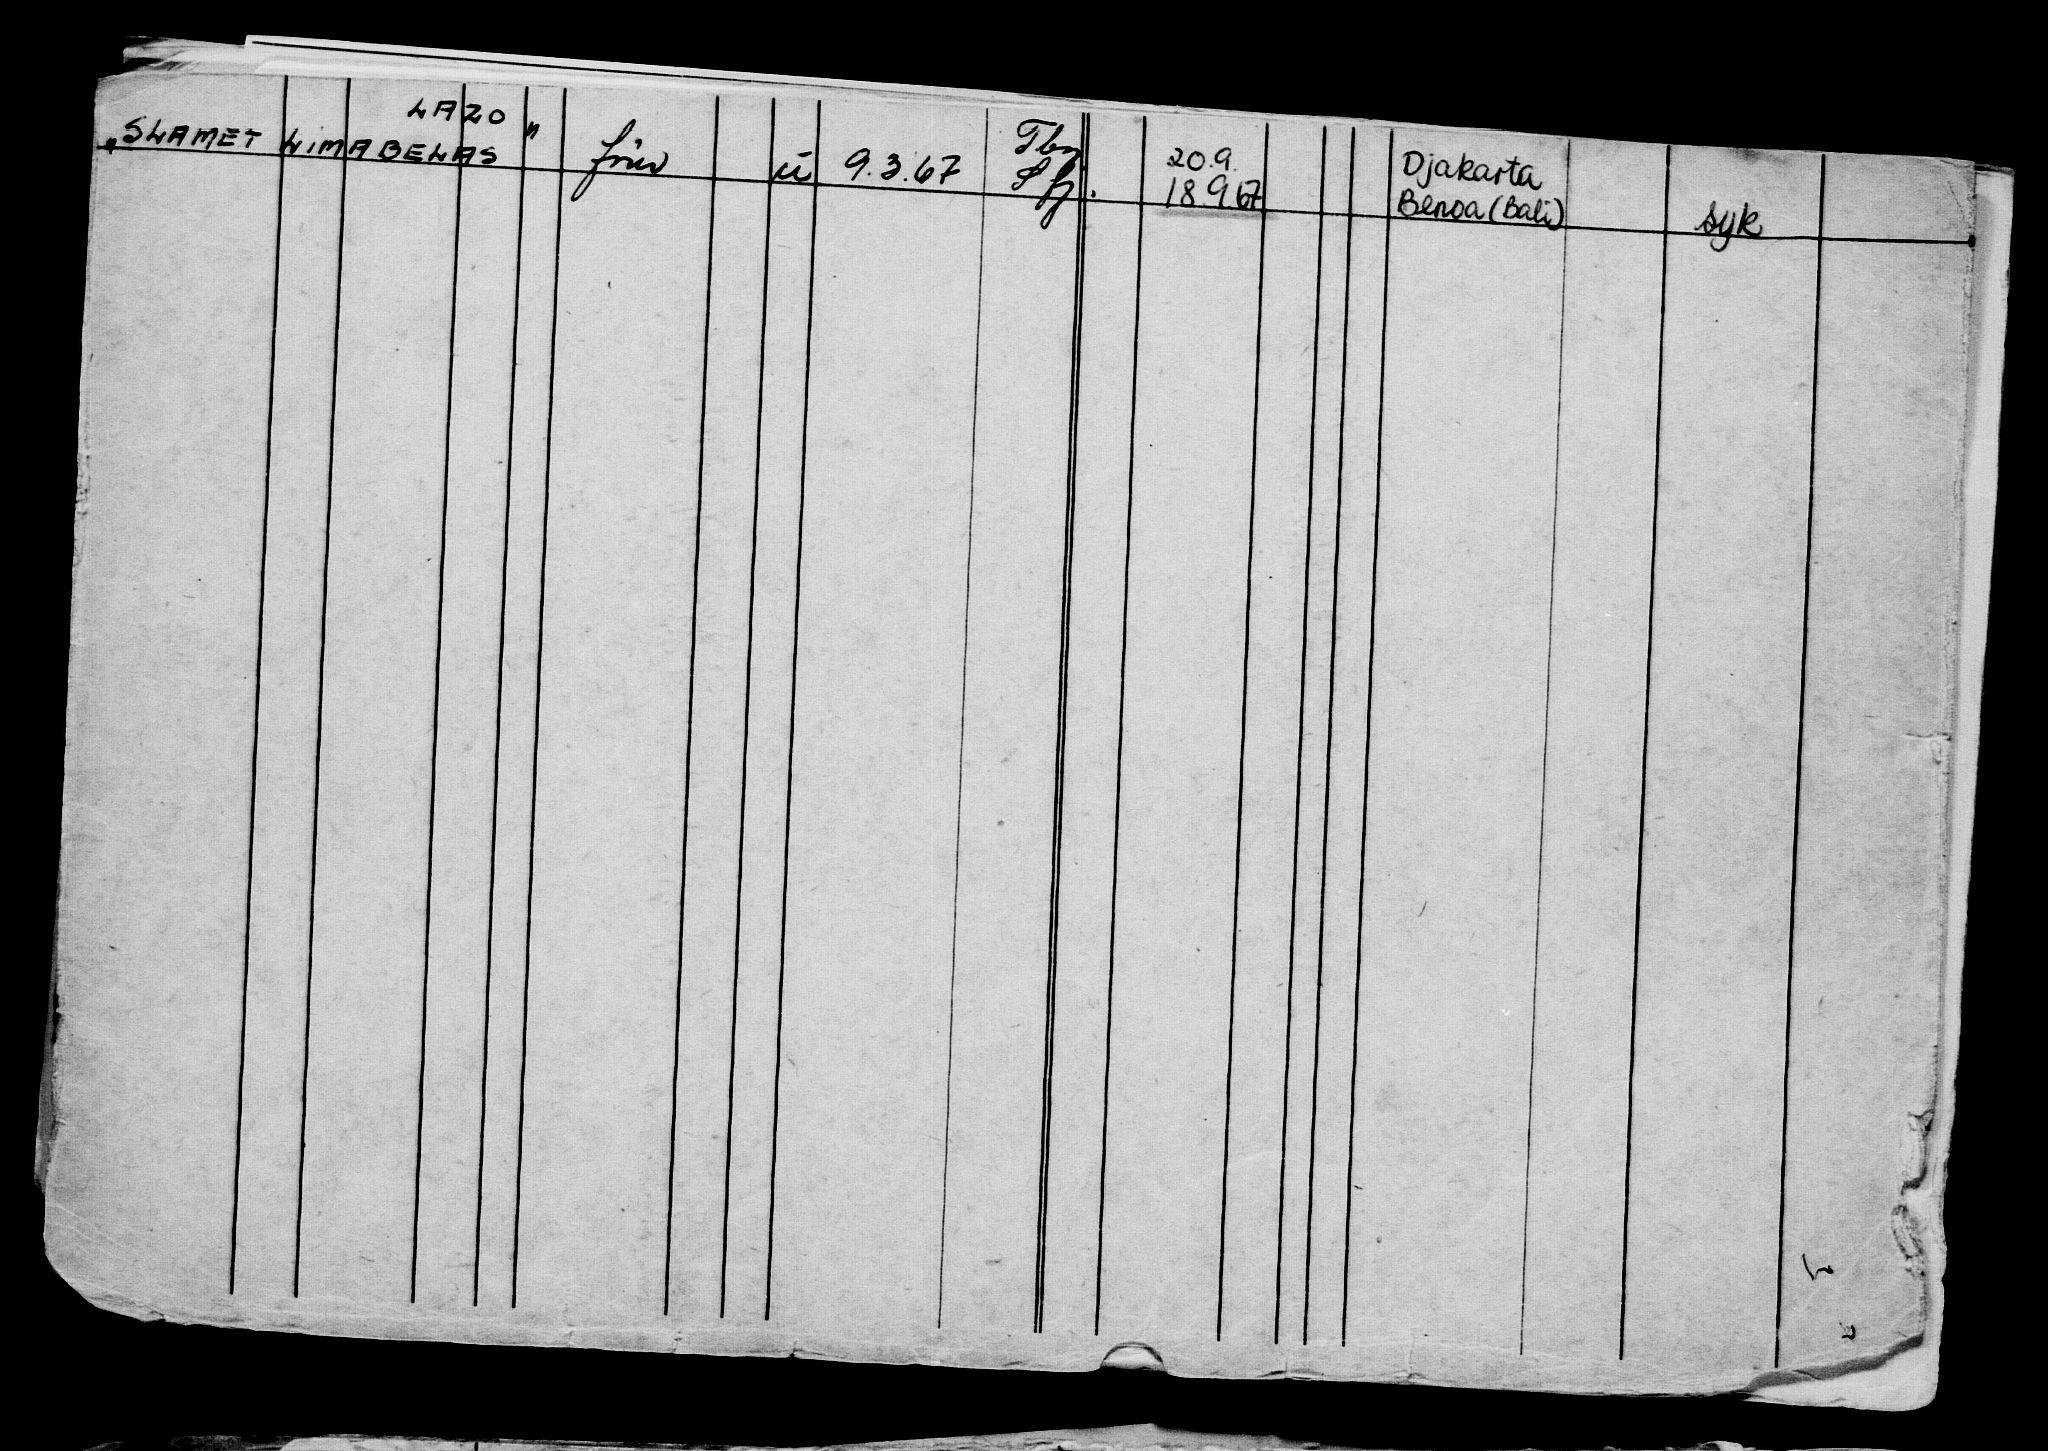 LAZO
„SLAMET LIMABELAS" frın u 9.3.67 Tbn 20.9. Djakarta
Sfj. 18.9.67 Benoa (Bali) syk